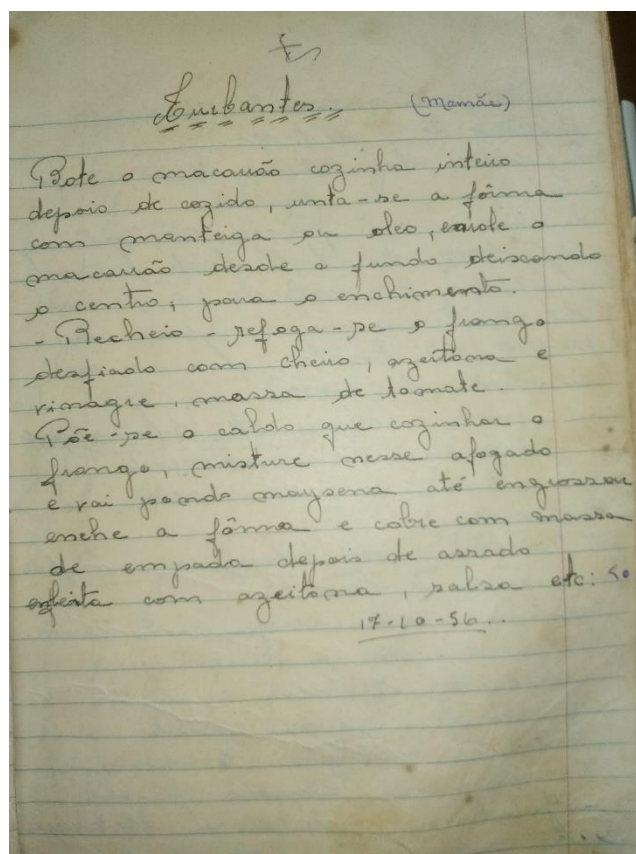 Turbantes. (Mamãe)
Bote o macarrão cozinha inteiro
depois de cozido, unta-se a fôrma
com manteiga ou oleo, enrole o
macarrão desde o fundo deixando
o centro, para o enchimento.
- Recheio - refoga-se o frango
desfiado com cheiro, azeitona e
vinagre, massa de tomate.
Põe-se o caldo que cozinhar o
frango, misture nesse afogado
e vai pondo mayzena até engrossar
enche a fôrma e cobre com massa
de empada depois de assado
enfeita com azeitona, salsa etc:
17-10-56..